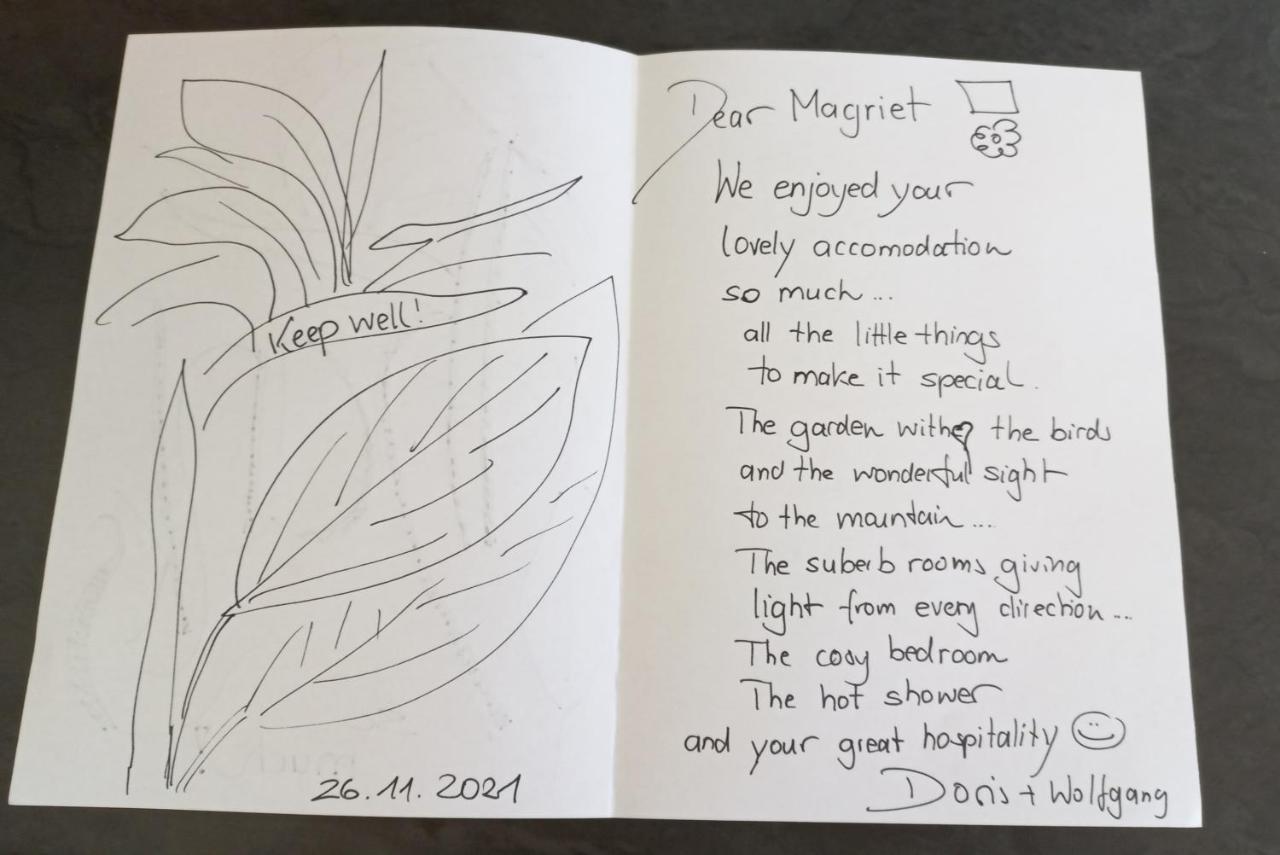 Keep well!
26.11.2021
Dear Magriet
We enjoyed your
lovely accomodation
so much...
all the little things
to make it special.
The garden with the birds
and the wonderful sight
to the mountain...
The suberb rooms giving
light from every direction...
The cosy bedroom
The hot shower
and your great hospitality
Doris + Wolfgang